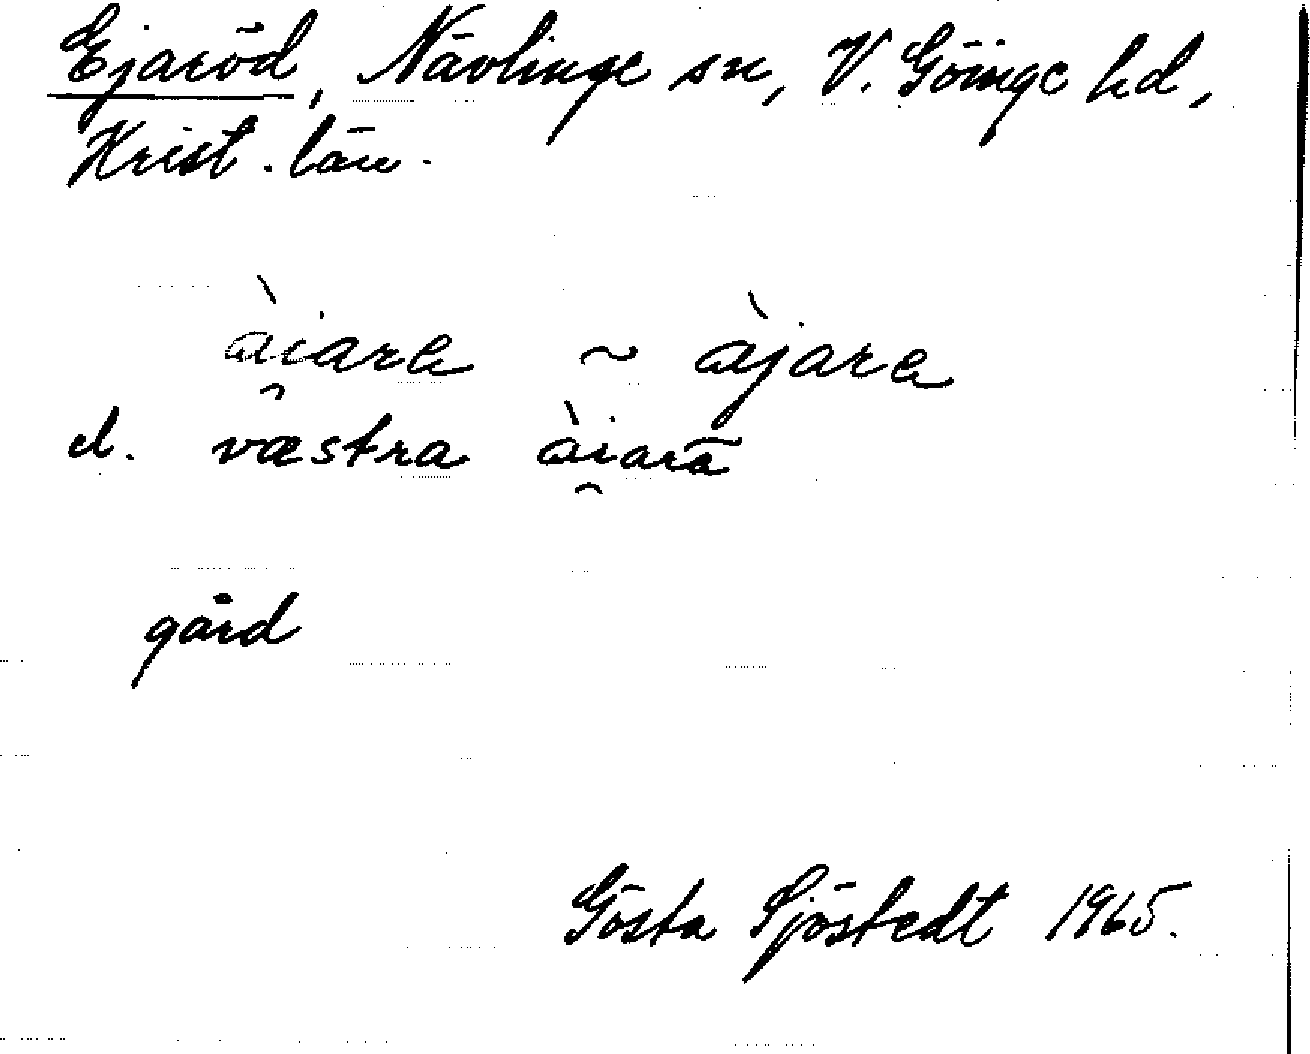 Ejaröd, Nävlinge sn, V. Göinge hd,
Krist. län.
ài̯ara ~ àjara
el. væstra ài̯arã
gård
Gösta Sjöstedt 1965.